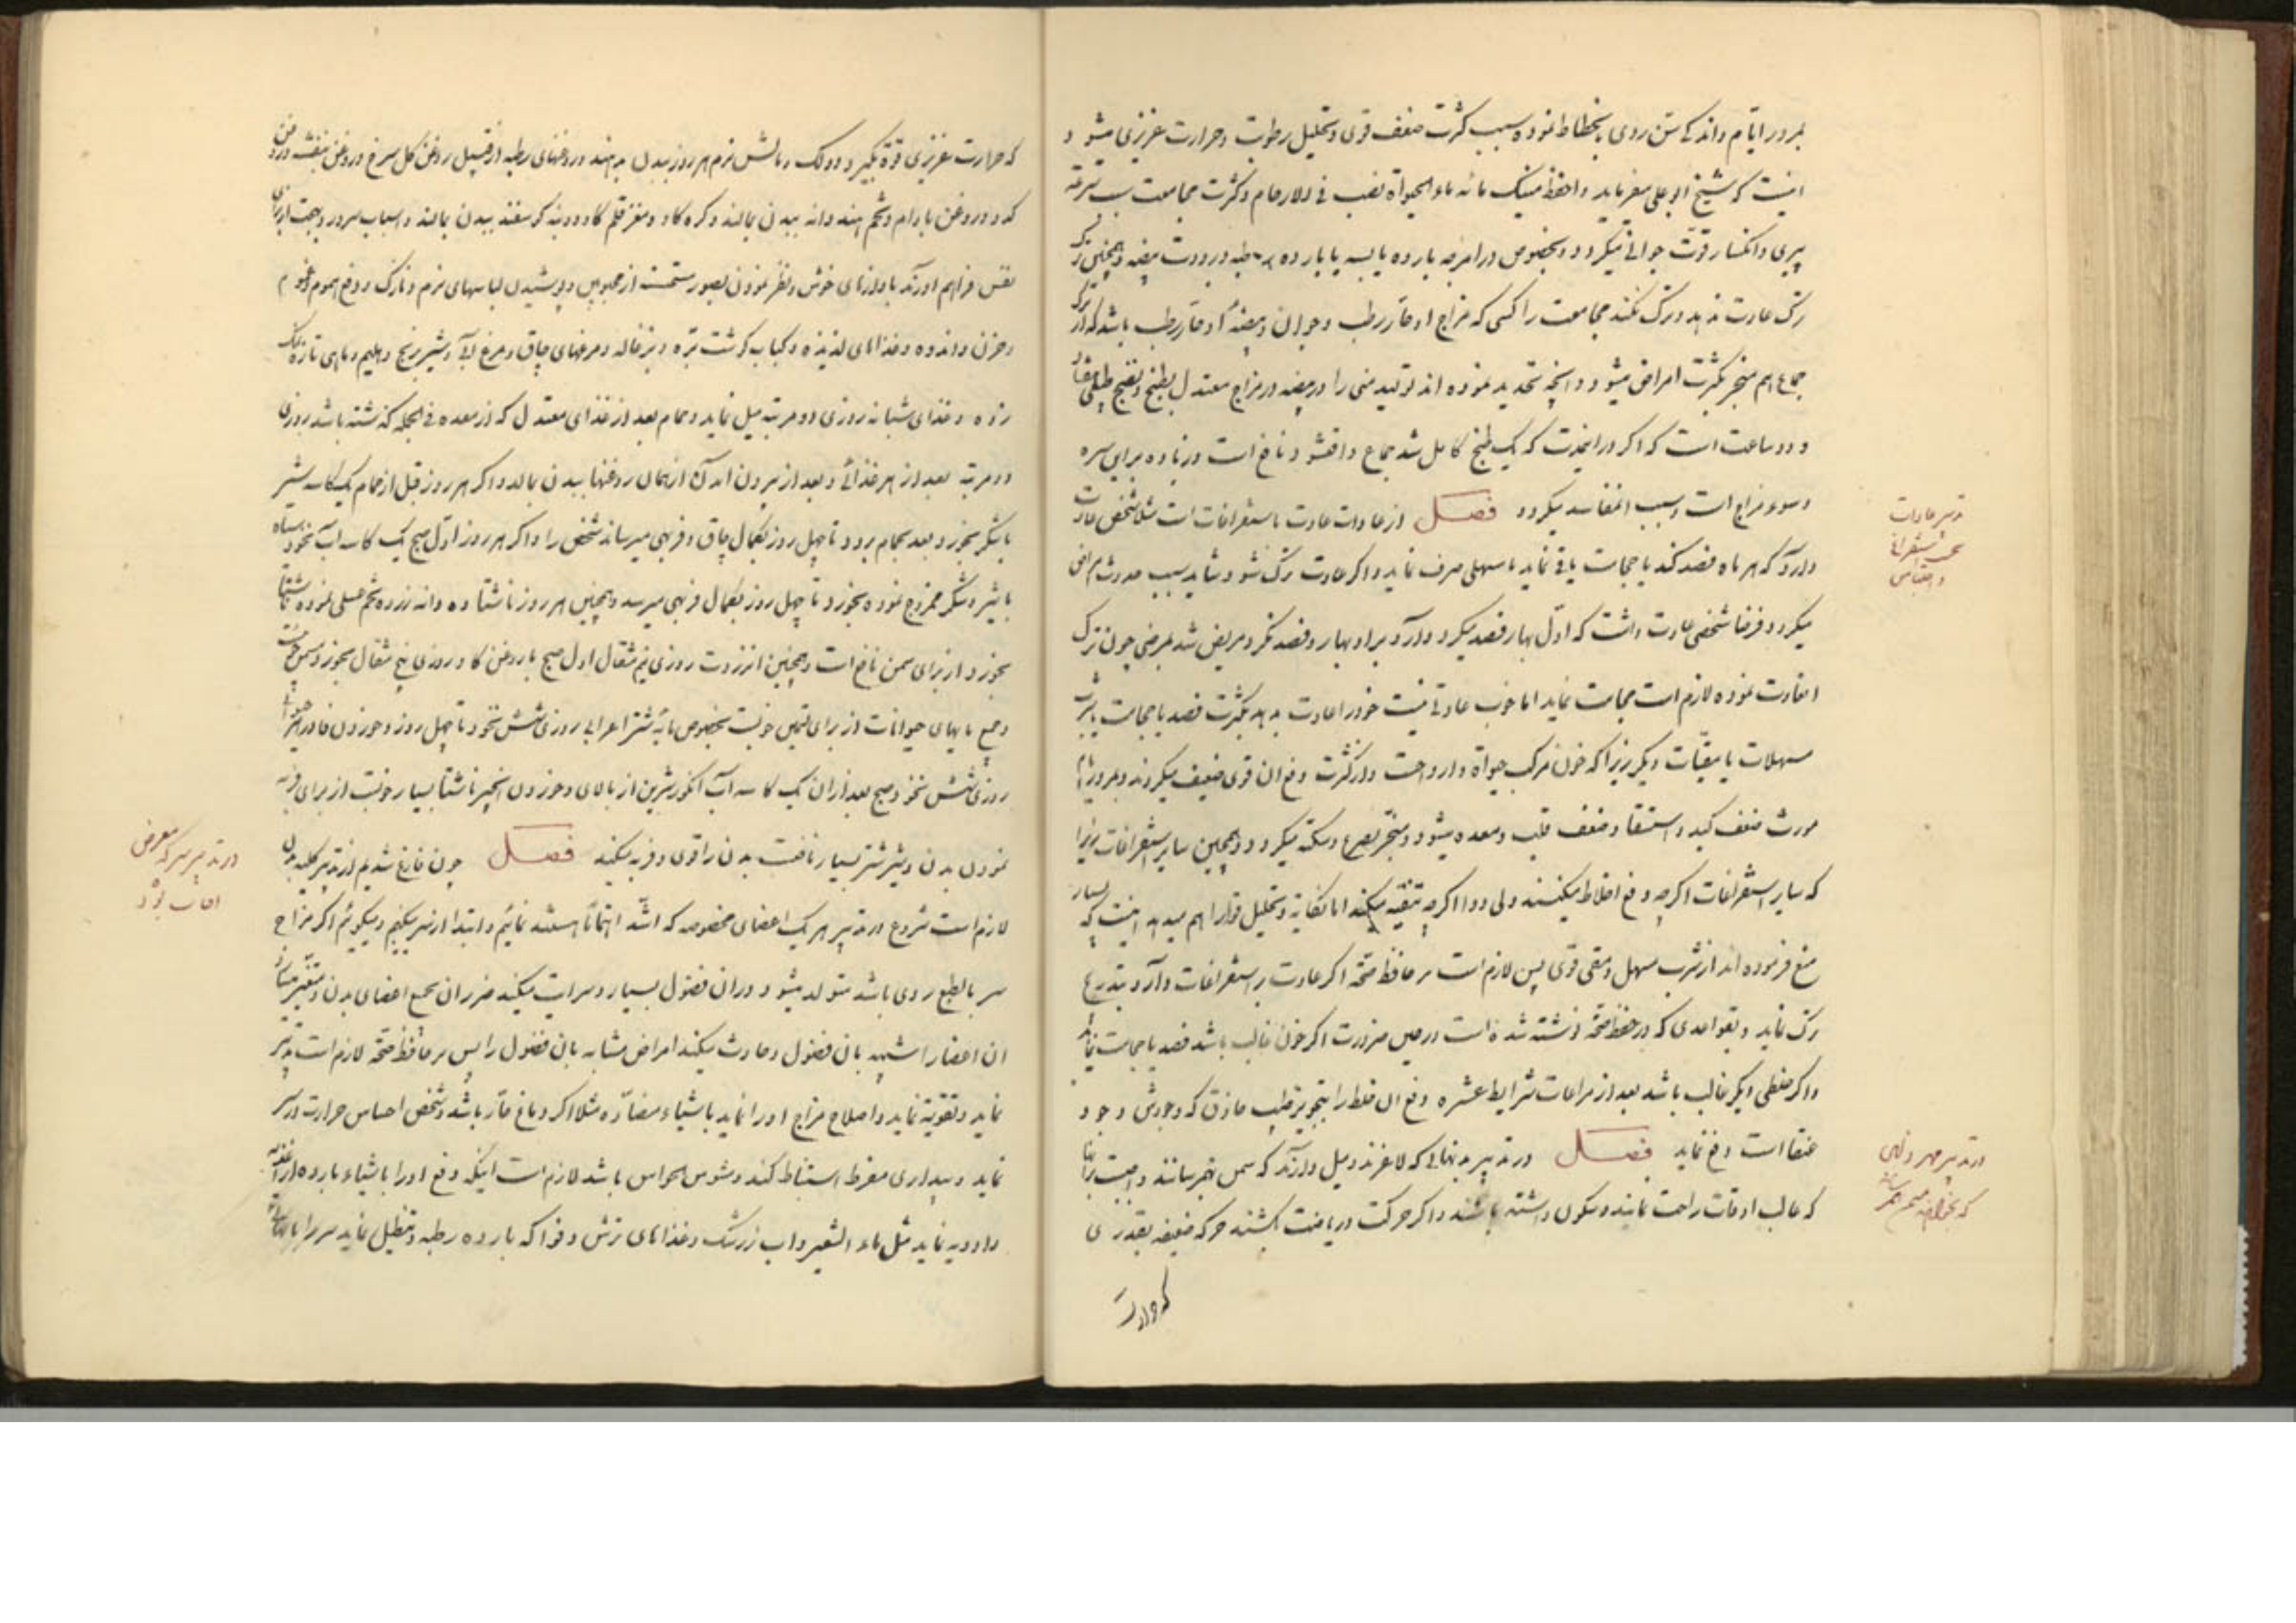 بمرور ایام و اندکی سن روی بانحطاط نموده سبب کثرت ضعف قوی و تحلیل رطوبت و حرارت غریزی میشود و
اینست که شیخ ابو علی میفرماید و احفظ منیک فانه ماء الحیوة یصب فی الارحام و کثرت مجامعت سبب سرعة
پیری و انکسار قوت جوانی میگردد و بخصوص در امزجه بارده یابسه یا بارده رطبه و برودت بیضه و همچنین
ترک عادت ندهد و ترک نکند مجامعت را کسی که مزاج او حار رطب و جوان و بیضه او حار رطب باشد که
جماع هم منجر بکثرت امراض میشود و آنچه تحدید نموده اند تولید منی را در بیضه در مزاج معتدل بطبخ و نضج
و دو ساعت است که اگر در اینمدت که یک طبخ کامل شد جماع واقع شود نافع است و زیاده بر این سره
و سوء مزاج است و سبب المفاسد میگردد فصل از عادات عادت باستفراغات است مثلا شخصی عادت
دارد که هر ماه فصد کند یا حجامت یا قی نماید یا مسهلی صرف نماید و اگر عادت ترک شود شاید سبب حدوث مرض
میگردد فرضا شخصی عادت داشت که اول بهار فصد میکرد وارد بر او بهار و فصد نکرد و مریض شد بمرضی چون ترک
عادت نموده لازم است حجامت نماید اما خوب عادتی نیست خود را عادت بدهد بکثرت فصد یا حجامت یا شرب
مسهلات یا مقیئات دیگر زیرا که خون مرکب حیوة و ارواحست و از کثرت دفع ان قوی ضعیف میگردند و بمرور ایام
مورث ضعف کبد و استسقا و ضعف قلب و معده میشود و منجر بصرع و سکته میگردد و همچنین سایر استفراغات زیرا
که سایر استفراغات اگرچه دفع اخلاط میکنند ولی دوا اگرچه تنقیه میکند اما نکایة و تحلیل قوا را هم میدهد اینست که بسیار
منع فرموده اند از شرب مسهل و مقی قوی پس لازم است بر حافظ صحة اگر عادت بر استفراغات دارد بتدریج
ترک نماید و بقواعدی که در حفظ صحة نوشته شده است در حین ضرورت اگر خون غالب باشد فصد یا حجامت نماید
و اگر خلطی دیگر غالب باشد بعد از مراعات شرایط عشره دفع ان خلط را بتجویز طبیب حاذق که وجودش وجود
عنقا است دفع نماید فصل در تدبیر بدنهائی که لاغرند و میل دارند که سمن بهم رسانند و اینست
که غالب اوقات راحت نمایند و سکون داشته باشند و اگر حرکت و ریاضت بکنند حرکه ضعیفه بقدری
که حرارت
که حرارت غریزی قوة بگیرد و دلک و مالش نرم هر روز ببدن بدهند و روغنهای رطبه از قبیل روغن گل سرخ و روغن بنفشه و روغن
کدو و روغن بادام و تخم هندوانه ببدن بمالند و کره گاو و مغز قلم گاو و دنبه گوسفند ببدن بمالند و اسباب سرور و بهجت از برای
نفس فراهم آورند با آوازهای خوش و نظر نمودن بصور مستحسنه از محبوبین و پوشیدن لباسهای نرم و نازک و دفع هموم و غموم
و حزن و اندوه و غذاهای لذیذه و کباب گوشت بره و بزغاله و مرغهای چاق و مرغ آبی و شیر برنج و هلیم و ماهی تازه نمک
زده و غذای شبانه روزی دو مرتبه میل نماید و حمام بعد از غذای معتدل که از معده فی الجمله گذشته باشد روزی
دو مرتبه بعد از هر غذائی و بعد از بیرون آمدن از همان روغنها ببدن بمالد و اگر هر روز قبل از حمام یک کاسه شیر
با شکر بخورد و بعد بحمام برود تا چهل روز بکمال چاق و فربهی میرساند شخص را و اگر هر روز اول صبح یک کاسه آب نخود سیاه
با شیر و شکر ممزوج نموده بخورد تا چهل روز بکمال فربهی میرسد و همچنین هر روز ناشتا ده دانه زرده تخم عسلی نموده ناشتا
بخورد از برای سمن نافع است و همچنین انزروت روزی نیم مثقال اول صبح با روغن گاو روزی پنج مثقال بخورد
و جمیع مایهای حیوانات از برای تسمین خوبست بخصوص مایه شتر اعرابی روزی شش نخود تا چهل روز و خوردن فادزهر
روزی شش نخود صبح بعد از ان یک کاسه آب انگور شیرین از بالای و خوردن انجیر ناشتا بسیار خوبست از برای فربه
نمودن بدن و شیر شتر بسیار نافعست بدن را قوی و فربه میکند فصل چون فارغ شدیم از تدبیر کلیه بدن
لازم است شروع در تدبیر هر یک اعضای مخصوصه که اشد اهتماما هستند نمائیم و ابتدا از سر میکنیم و میگوئیم اگر مزاج
سر بالطبع ردی باشد متولد میشود در ان فضول بسیار و سرایت میکند ضرر ان بجمیع اعضای بدن و متغیر میسازد
ان اعضا را شبیه بان فضول و حادث میکند امراض مشابه بان فضول را پس بر حافظ صحة لازم است تدبیر
نماید و تقویة نماید و اصلاح مزاج او را نماید باشیاء مضاده مثلا اگر دماغ حار باشد و شخص احساس حرارت در سر
نماید و بیداری مفرط استنباط کند و مشوش الحواس باشد لازم است اینکه دفع او را باشیاء بارده از اغذیه
و ادویه نماید مثل ماء الشعیر و اب زرشک و غذاهای ترش و فواکه بارده رطبه و تنطیل نماید سر را
در تدبیر سر که معرض
افات بود